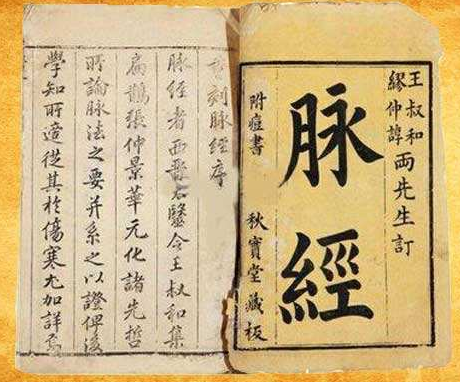 王叔和
繆仲諄
両先生訂
脉經
附痘書 秋寶堂藏板
刻脉經序
脉經者西晉太醫令王叔和集
扁鵲張仲景華元化諸先哲
所論脉法之要并系之以證俾後
學知所造從其於傷寒尤加詳焉